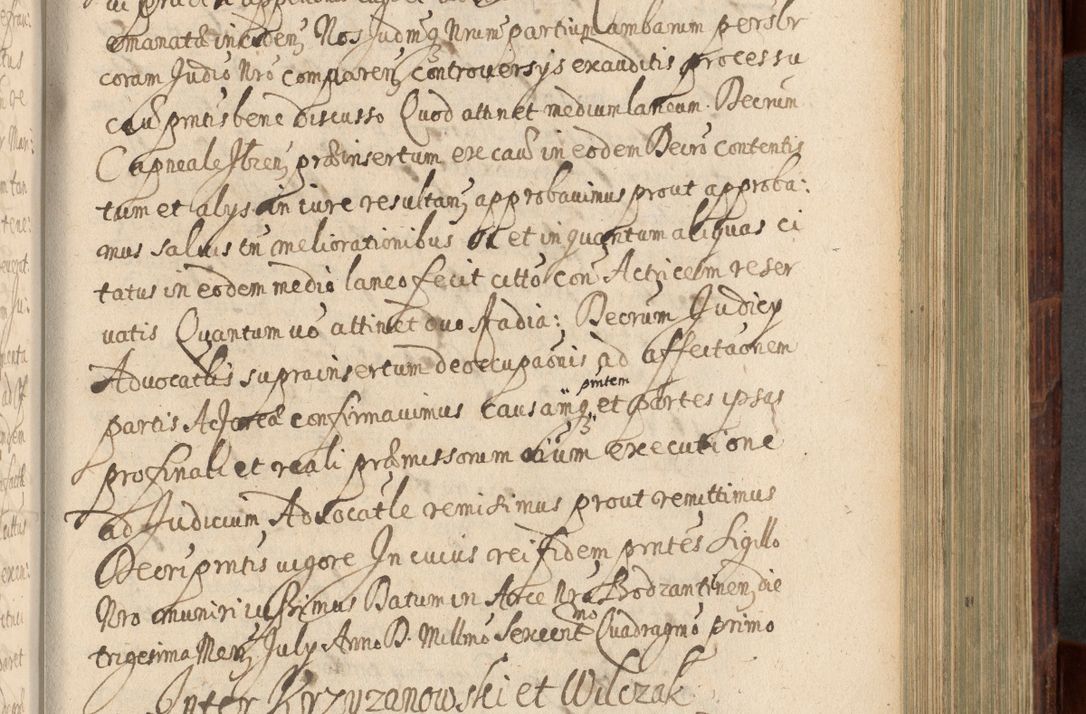 emanatæ in eidem Nos Judmq Nrum partium ambarum persbr
coram Judio Nro comparen controversys exauditis processu
cau prntis bene discusso Quod attinet medium laneum Decrum
Capneale Ibzen præinsertum ex cau in eodem Decro contentis
tum et alys in iure resultan approbavimus prout approba:
mus salvis tn meliorationibus si et in quantum aliquas ci
tatus in eodem medio laneo fecit citto con Actricem reser
vatis Quantum vo attinet duo stadia: Decrum Judicy
Advocatlis suprainsertum deoccupaonis ad affectaonem
partis Actoreæ confirmavimus causamq prntem et partes ipsas
pro finali et reali præmissorum oium executione
ad Judicium Advocatle remisimus prout remittimus
Decri prntis vigore In cuius rei fidem prntes Sigillo
Nro muniri iussimus Datum in Arce Nra Bodzantinen die
trigesima Men July Anno D. Millmo Sexcentmo Quadragmo primo
Inter Krzyzanowski et Wilczak